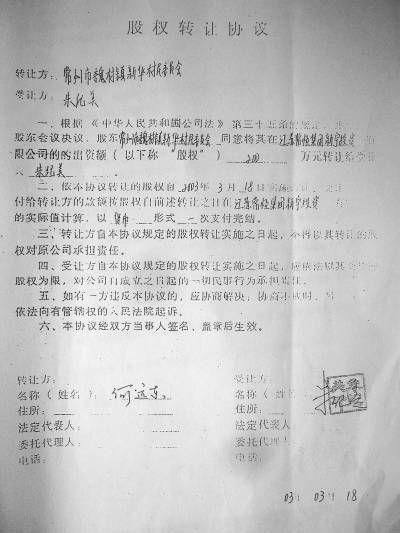 股权转让协议
转让方：常州市魏村镇新华村村民委员会
受让方：朱
一、根据《中华人民共和国公司法》第三十五条的规定
股东会议决议，股东常州市魏村镇新华村村民委员会同意将其在江苏常恒集团
限公司的的出资额（以下称“股权”）200万元转让给受让
二、依本协议转让的股权自2003年3月18日实施转让
付给转让方的款额按股权自前述转让之日在江苏常恒集团
的实际值计算，以货币形式一次支付完结。
三、转让方自本协议规定的股权转让实施之日起，不得以其转让的股
权对原公司承担责任。
四、受让方自本协议规定的股权转让实施之日起，应依法以其
股权为限，对公司自成立之日起的一切民事行为承担责任。
五、如有一方违反本协议的，应协商解决；协商不成时，
依法向有管辖权的人民法院起诉。
六、本协议经双方当事人签名、盖章后生效。
转让方： 受让方：
名称（姓名）：何远东 名称（姓名）：朱
住所： 住所：
法定代表人： 法定代表人：
委托代理人： 委托代理人：
电话： 电话：
03年 03月 18